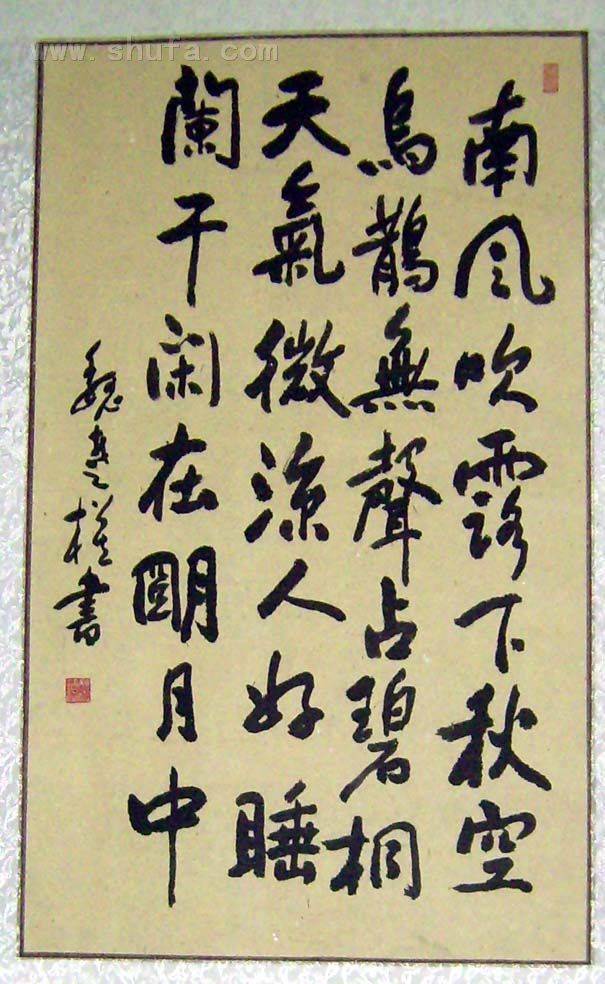 www.shufa.com
南風吹露下秋空
烏鵲無聲占碧桐
天氣微涼人好睡
蘭干閑在朙月中
魏 書